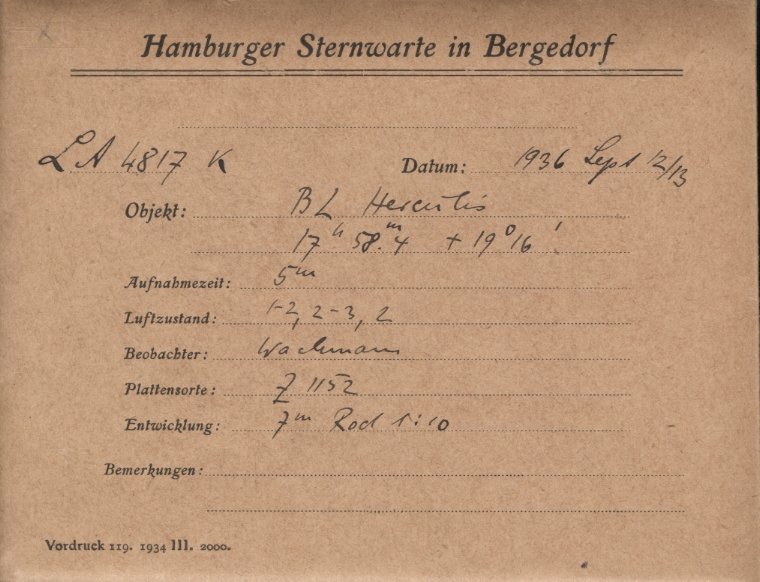 Hamburger Sternwarte in Bergedorf
LA 4817 K Datum: 1936 Sept 12/13
Objekt: BL Herculis
17h 58.m4 + 19° 16'
Aufnahmezeit: 5m
Luftzustand: 1-2, 2-3, 2
Beobachter: Wachmann
Plattensorte: Z 1152
Entwicklung: 7m Rod 1:10
Bemerkungen:
Vordruck 119. 1934 III. 2000.